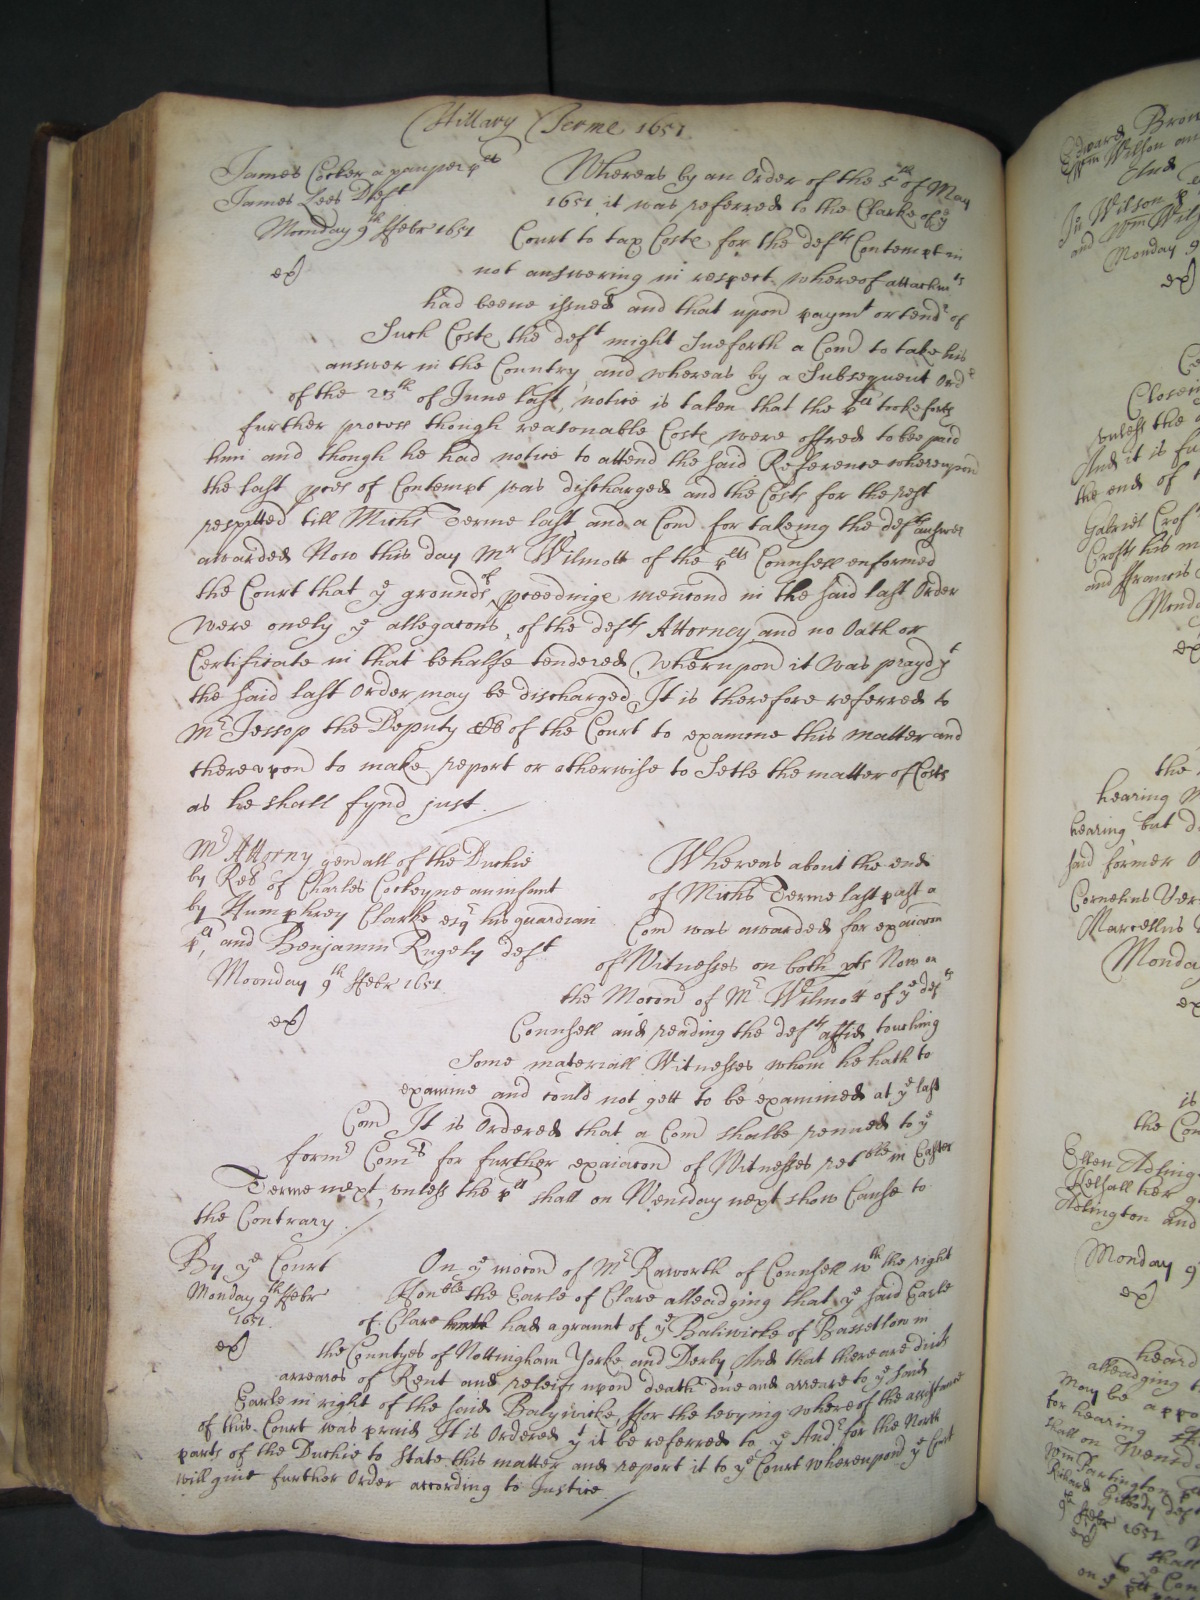 Hillary Terme 1651
James Cocker a pauper plt
James Lees Deft
Moonday 9th ffebr 1651
ex
Whereas by an Order of the 5th of May
1651 it was referred to the Clarke of ye
Court to tax Costs for the defts Contempt in
not answering in respect whereof attachmts
had beene issued and that upon paymt or tendr of
Such Costs the deft might Sueforth a Com to take his
answer in the Country and whereas by a Subsequent Ordr
of the 25th of June last, notice is taken that the plt tooke forth
further process though reasonable Costs were offred to bee paid
him and though he had notice to attend the said Reference whereupon
the last pces of Contempt was discharged and the Costs for the rest
respitted till Michs Terme last and a Com for takeing the defts answer
awarded Now this day Mr Wilmott of the plts Counsell enformed
the Court that ye grounds of proceedings mencond in the said last Order
were onely ye allegacons of the defts Attorney and no Oath or
Certificate in that behalfe tendered Whereupon it was prayd yt
the said last Order may be discharged It is therefore referred to
Mr Jessop the Deputy of the Court to examine this matter and
thereupon to make report or otherwise to Setle the matter of Costs
as he shall fynd just.
Mr Attorny gendall of the Duchie
by Rel of Charles Cockeyne an infant
by Humphrey Clarke esqr his guardian
plt, and Benjamin Rugely deft
Moonday 9th ffebr 1651
ex
Whereas about the end
of Michs Terme last past a
Com was awarded for exaiacon
of Witnesses on both pts Now on
the Mocon of Mr Wilmott of ye defts
Counsell and reading the defts affid touching
Some materiall Witnesses whom he hath to
examine and could not gett to be examined at ye last
Com It is Ordered that a Com shalbe renued to ye
formr Comrs for further exaiacon of Witnesses retble in Easter
Terme next, unless the plt shall on Wensday next show Cause to
the Contrary.
By ye Court
Monday 9th ffebr
1651.
ex
On ye mocon of Mr Raworth of Counsell wth the right
Honble the Earle of Clare alleadging that ye said Earle
of Clare had a grannt of ye Baliwicke of Bassetlow in
the Countyes of Nottingham Yorke and Derby And that there are divrs
arreares of Rent and releifs upon death due and arreare to ye said
Earle in right of the said Balywicke, ffor the levying whereof the assistance
of this Court was praid It is Ordered yt it be referred to ye Audr for the North
parts of the Duchie to State this matter and report it to ye Court whereupon ye Court
will give further Order according to Justice
Edward Brow
Wm Wilson an
And
Jn Wilson
and Wm Wils
Monday 9
ex
Closein
unless the
And it is fu
the end of t
Gabriel Crofts
Crofts his m
and ffrancis
Monday
ex
the
hearing
hearing but
said former O
Cornelius Ver
Marcellus
Monday
ex
is
the Com
Ellen Adling
Kelsall her g
Adlington and
Monday 9
ex
heard
alleadging t
May be appo
for hearing
shall on Wensda
Wm Partington
Richard Gilbody def
9th ffebr 1651
ex
shall
on ye plt